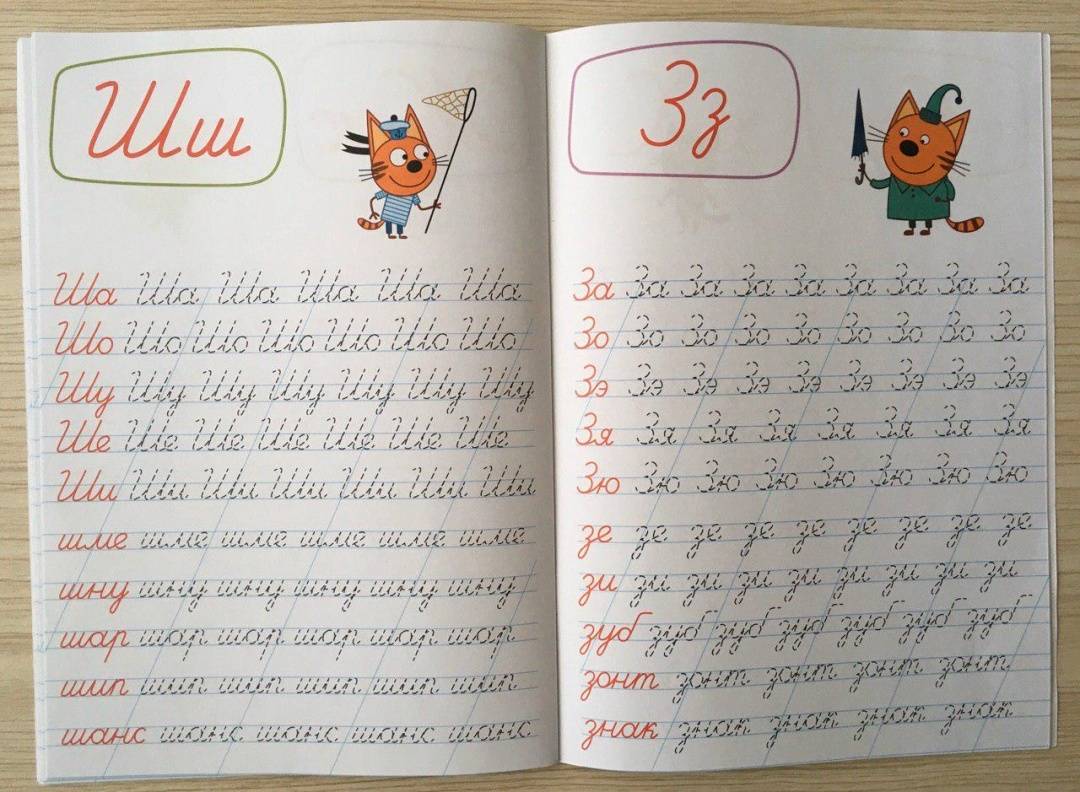 Шш
Ша Ша Ша Ша Ша Ша
Шо Шо Шо Шо Шо Шо Шо
Шу Шу Шу Шу Шу Шу Шу
Ше Ше Ше Ше Ше Ше Ше
Ши Ши Ши Ши Ши Ши Ши
шме шме шме шме шме шме
шну шну шну шну шну шну
шар шар шар шар шар шар
шип шип шип шип шип шип
шанс шанс шанс шанс шанс
Зз
За За За За За За За За За
Зо Зо Зо Зо Зо Зо Зо Зо Зо
Зэ Зэ Зэ Зэ Зэ Зэ Зэ Зэ Зэ
Зя Зя Зя Зя Зя Зя Зя Зя
Зю Зю Зю Зю Зю Зю Зю Зю
зе зе зе зе зе зе зе зе зе
зи зи зи зи зи зи зи зи зи
зуб зуб зуб зуб зуб зуб зуб
зонт зонт зонт зонт зонт
знак знак знак знак знак